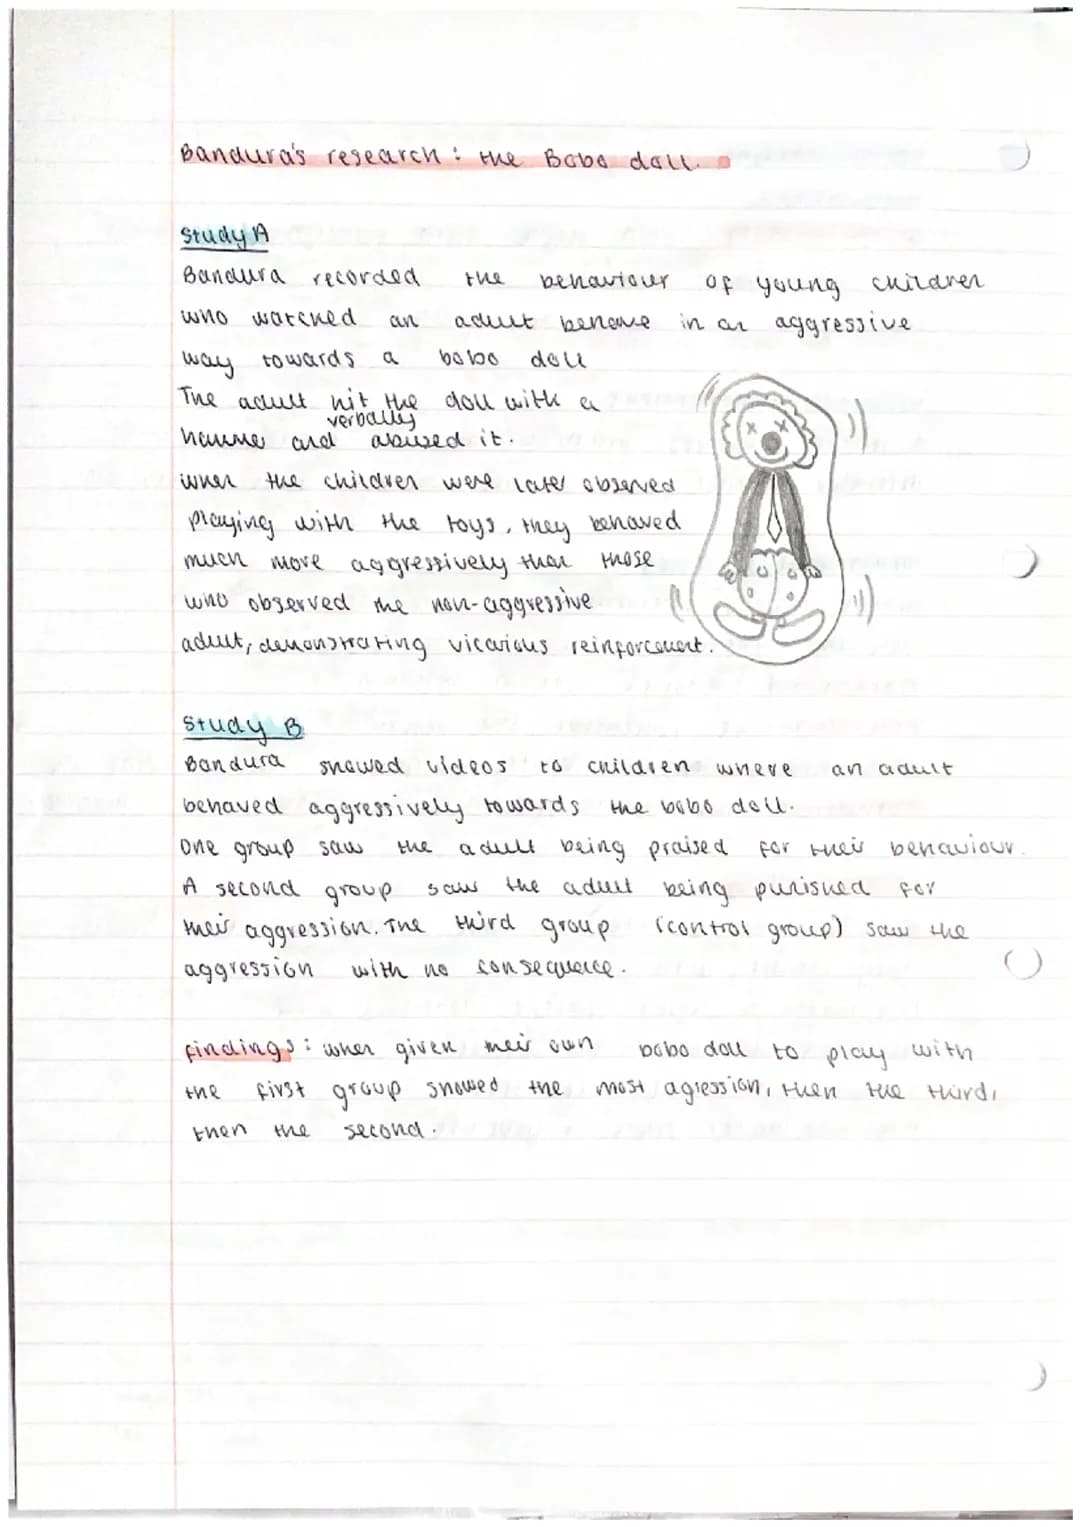 Bandura's research : the Bobo doll.
Study A
Bandura recorded the behaviour of young children
who watched an adult behave in an aggressive
way towards a bobo doll
The adult hit the doll with a
verbally
hamme and abused it.
when the children were later observed
playing with the toys, they behaved
much more aggressively than those
who observed the non-aggressive
adult, demonstrating vicarious reinforcement.
Study B
Bandura showed videos to children where an adult
behaved aggressively towards the bobo doll.
One group saw the adult being praised for their behaviour.
A second group saw the adult being punished for
their aggression. The third group (control group) saw the
aggression with no consequence.
findings : when given their own bobo doll to play with
the first group showed the most agression, then the third,
then the second.